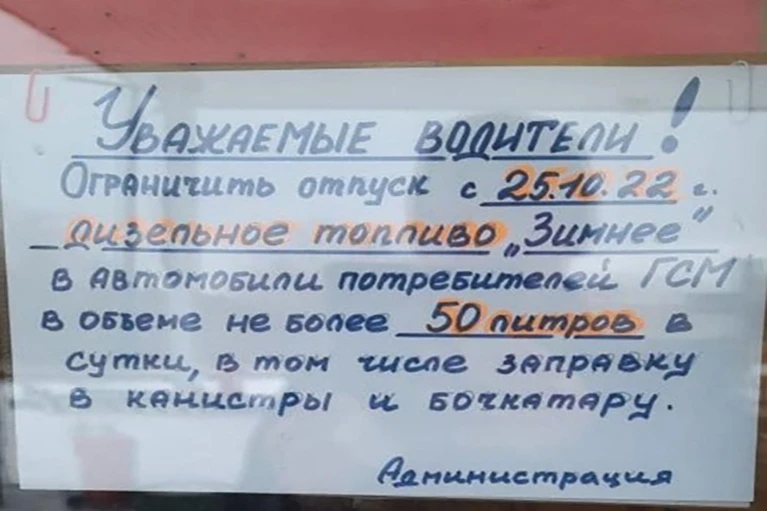 Уважаемые водители!
Ограничить отпуск с 25.10.22 г.
дизельное топливо „Зимнее"
в автомобили потребителей ГСМ
в объеме не более 50 литров в
сутки, в том числе заправку
в канистры и бочкатару.
Администрация